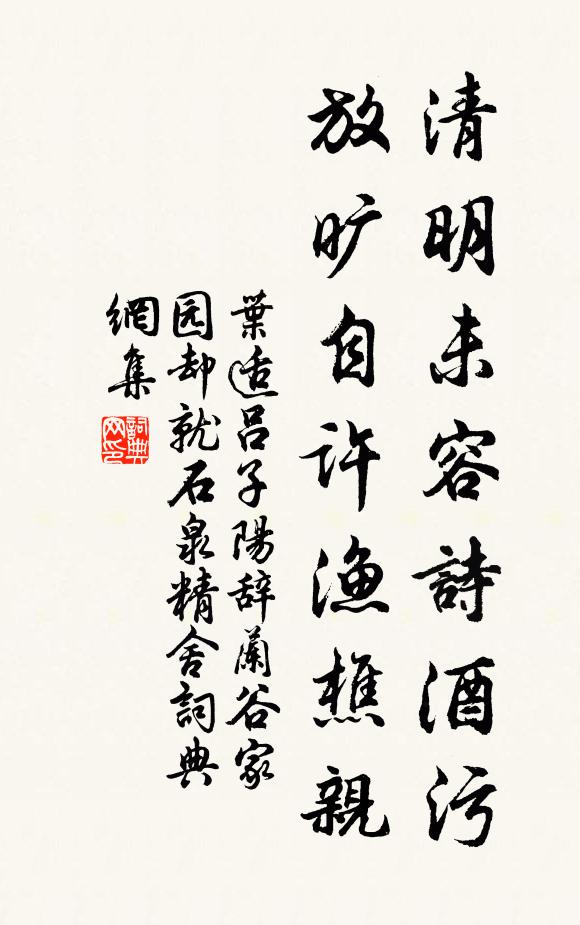 清明未容詩酒污
放旷自许渔樵親
葉适吕子陽辞蘭谷家
园却就石泉精舍詞典
網集
詞典
网印